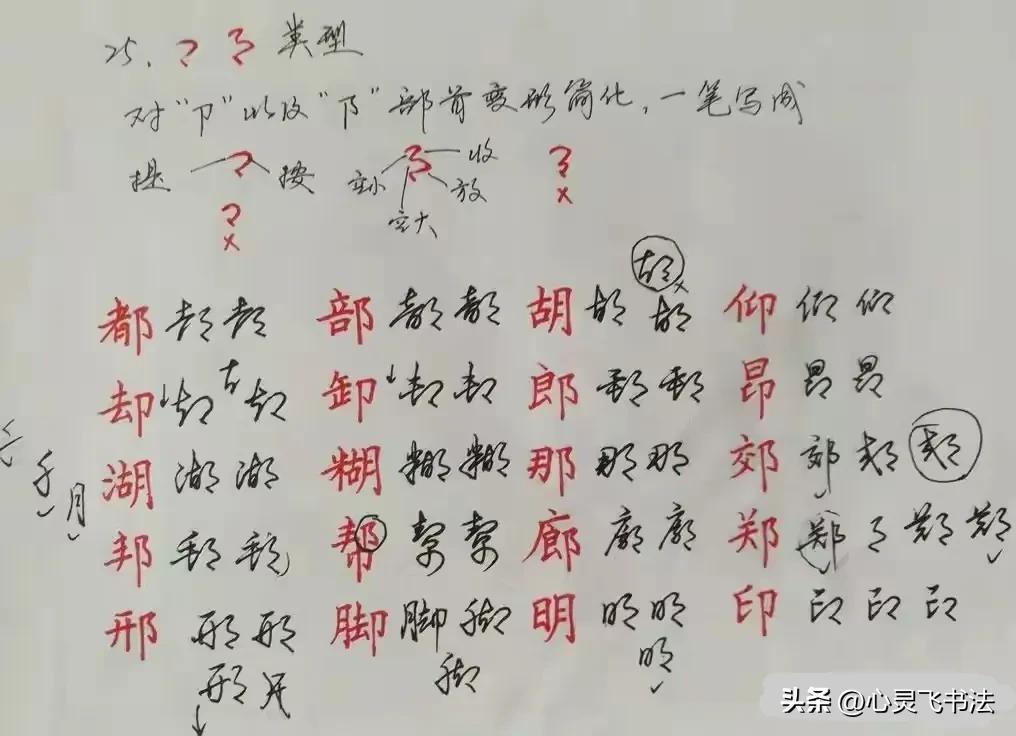 25. 类型
对“卩”以及“阝”部首变形简化,一笔写成
提 按 变小 变大 收 放
都 都 都 部 部 部 胡 胡 胡 胡 仰 仰 仰
却 却 却 卸 卸 卸 郎 郎 郎 昂 昂 昂
湖 湖 湖 糊 糊 糊 那 那 那 郊 郊 郊 郊
邦 邦 邦 帮 帮 帮 廊 廊 廊 郑 郑 郑 郑
邢 邢 邢 脚 脚 脚 明 明 明 印 印 印 印
邢 脚 明
月
头条 @心灵飞书法